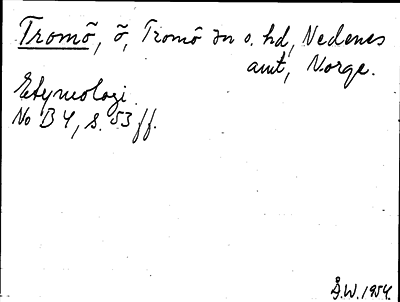 Tromö, ö, Tromö sn o. hd, Nedenes
amt, Norge.
Etymologi.
No B 4, s. 53 ff.
Å.W. 1954.